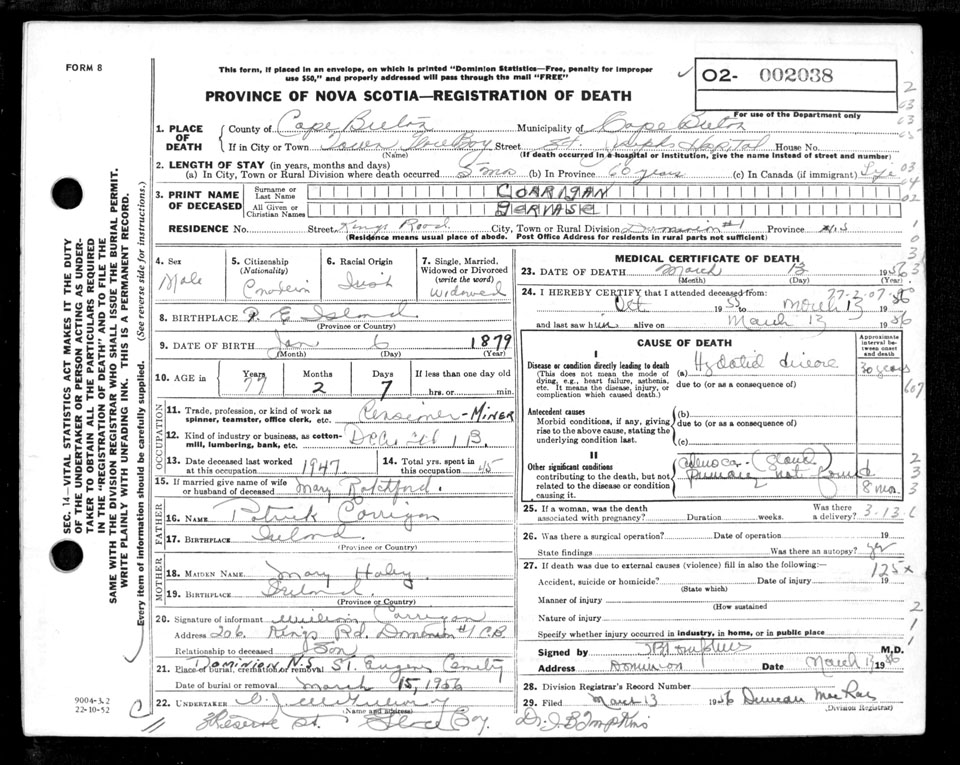 FORM 8
This form, if placed in an envelope, on which is printed "Dominion Statistics—Free, penalty for improper
use $50," and properly addressed will pass through the mail "FREE"
O2- 002038
For use of the Department only
PROVINCE OF NOVA SCOTIA—REGISTRATION OF DEATH
1. PLACE OF DEATH
County of Cape Breton Municipality of Cape Breton
If in City or Town Town Glace Bay Street St. Josephs Hospital House No.
(Name) (If death occurred in a hospital or institution, give the name instead of street and number)
2. LENGTH OF STAY (in years, months and days)
(a) In City, Town or Rural Division where death occurred 5 mos (b) In Province 60 years (c) In Canada (if immigrant) Life
3. PRINT NAME OF DECEASED
Surname or Last Name CORRIGAN
All Given or Christian Names GERVASE
RESIDENCE No. Street Kings Road City, Town or Rural Division Dominion #1 Province N.S
(Residence means usual place of abode. Post Office Address for residents in rural parts not sufficient)
4. Sex
Male
5. Citizenship
(Nationality)
Canadian
6. Racial Origin
Irish
7. Single, Married, Widowed or Divorced
(write the word)
Widowed
8. BIRTHPLACE P. E Island
(Province or Country)
9. DATE OF BIRTH Jan 6 1879
(Month) (Day) (Year)
10. AGE in Years 77 Months 2 Days 7 If less than one day
hrs. or min.
OCCUPATION
11. Trade, profession, or kind of work as
spinner, teamster, office clerk, etc. Pensioner-MINER
12. Kind of industry or business, as cotton-
mill, lumbering, bank, etc.
13. Date deceased last worked
at this occupation 1947
14. Total yrs. spent in
this occupation 45
15. If married give name of wife
or husband of deceased Mary
FATHER
16. NAME Patrick Corrigan
17. BIRTHPLACE Ireland
(Province or Country)
MOTHER
18. MAIDEN NAME Mary Haley
19. BIRTHPLACE Ireland
(Province or Country)
20. Signature of informant William Corrigan
Address 206 Kings Rd. Dominion #1 C.B
Relationship to deceased Son
21. Place of burial, cremation or removal DOMINION N.S. ST. Eugene Cemetry
Date of burial or removal March 15, 1956
22. UNDERTAKER
(Name and address)
St. Glace Bay.
MEDICAL CERTIFICATE OF DEATH
23. DATE OF DEATH March 13 1956
(Month) (Day) (Year)
24. I HEREBY CERTIFY that I attended deceased from:
27-2-07
Oct 1955 March 13 1956
and last saw him alive on March 13 1956
CAUSE OF DEATH
Approximate interval between onset and death
I
Disease or condition directly leading to death
(This does not mean the mode of
dying, e.g., heart failure, asthenia,
etc. It means the disease, injury, or
complication which caused death.)
(a) Hydatid disease 30 years
due to (or as a consequence of)
607
Antecedent causes
Morbid conditions, if any, giving
rise to the above cause, stating the
underlying condition last.
(b)
due to (or as a consequence of)
(c)
II
Other significant conditions
contributing to the death, but not
related to the disease or condition
causing it.
Adenoca-
primary not found
8 mos.
25. If a woman, was the death
associated with pregnancy? Duration weeks. Was there
a delivery?
3-13-6
26. Was there a surgical operation? Date of operation 19
State findings Was there an autopsy? yes
27. If death was due to external causes (violence) fill in also the following:—
125x
Accident, suicide or homicide? Date of injury 19
(State which)
Manner of injury
(How sustained
Nature of injury
Specify whether injury occurred in industry, in home, or in public place
Signed by JB Tompkins M.D.
Address Dominion Date March 13 1956
28. Division Registrar's Record Number
29. Filed March 13 1956 Duncan MacRae
(Division Registrar)
Dr. J. B Tompkins
SEC. 14—VITAL STATISTICS ACT MAKES IT THE DUTY
OF THE UNDERTAKER OR PERSON ACTING AS UNDER-
TAKER TO OBTAIN ALL THE PARTICULARS REQUIRED
IN THE "REGISTRATION OF DEATH" AND TO FILE THE
SAME WITH THE DIVISION REGISTRAR WHO SHALL ISSUE THE BURIAL PERMIT.
WRITE PLAINLY WITH UNFADING INK. THIS IS A PERMANENT RECORD.
Every item of information should be carefully supplied. (See reverse side for instructions.)
9004-3.2
22-10-52